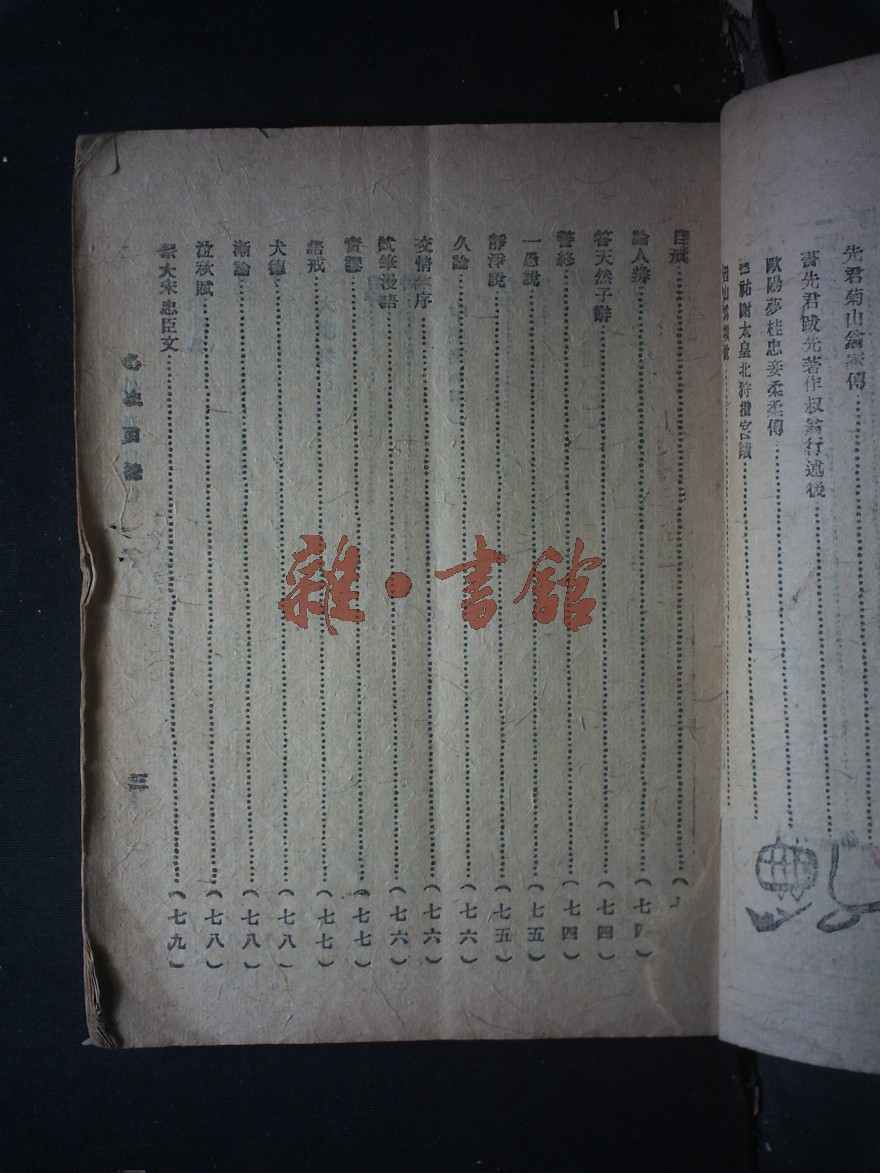 先君菊山翁家傳
書先君跋先著作叔翁行述後
歐陽夢桂忠妾柔柔傳
德祐謝太皇北狩攢宮議
自戒
論人葬
答天然子辭……(七四)
警終……(七四)
一愚說……(七五)
靜淨說……(七五)
久論……(七六)
交情集序……(七六)
試筆漫語……(七六)
實謬……(七七)
語戒……(七七)
犬德……(七八)
漸論……(七八)
泣秋賦……(七八)
祭大宋忠臣文……(七九)
三
雜·書館